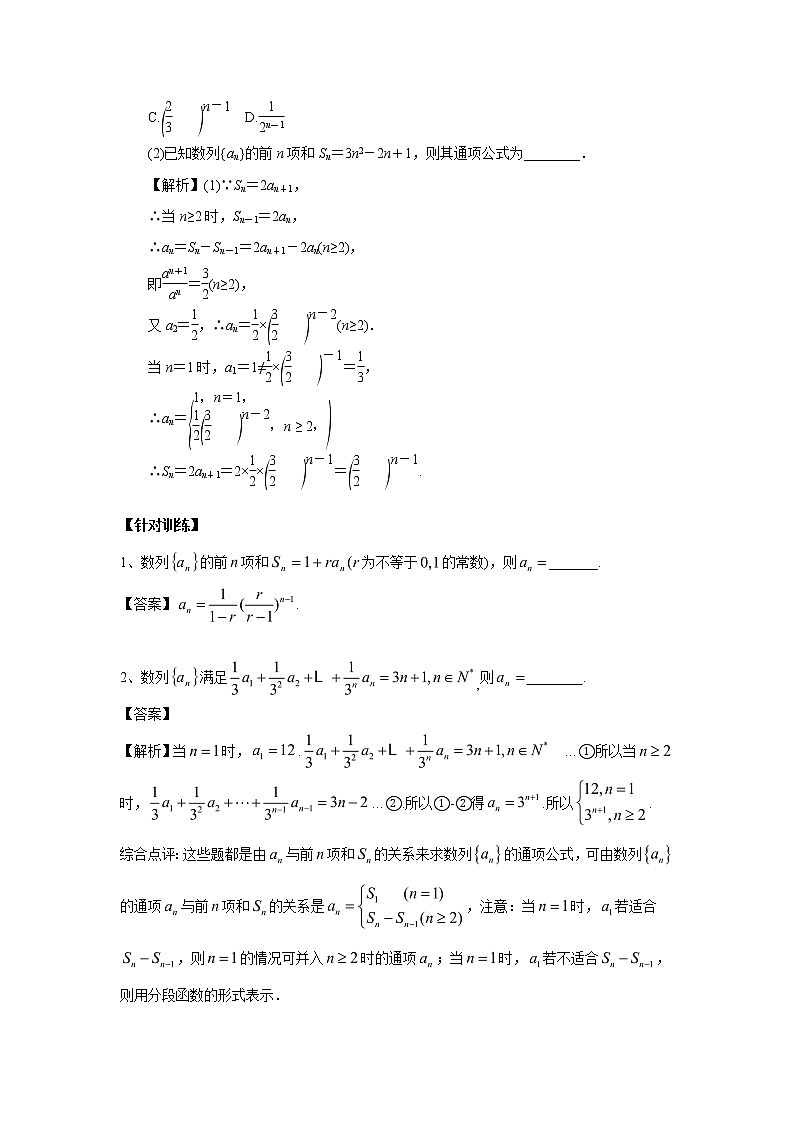 C.(2/3)^{n－1}　D.1/2^{n－1}
(2)已知数列{aₙ}的前 n 项和 Sₙ＝3n²－2n＋1，则其通项公式为________．
【解析】(1)∵Sₙ＝2aₙ₊₁，
∴当 n≥2 时，Sₙ₋₁＝2aₙ，
∴aₙ＝Sₙ－Sₙ₋₁＝2aₙ₊₁－2aₙ(n≥2)，
即a^{n＋1}/a^{n}＝3/2(n≥2)，
又 a₂＝1/2，∴aₙ＝1/2×(3/2)^{n－2}(n≥2)．
当 n＝1 时，a₁＝1≠1/2×(3/2)^{－1}＝1/3，
∴aₙ＝{1，n＝1，
1/2(3/2)^{n－2}，n ≥ 2，)
∴Sₙ＝2aₙ₊₁＝2×1/2×(3/2)^{n－1}＝(3/2)^{n－1}.
【针对训练】
1、数列{aₙ}的前 n 项和 Sₙ = 1 + raₙ (r 为不等于 0,1 的常数)，则 aₙ = _______．
【答案】aₙ = 1/(1−r) (r/(r−1))^{n−1}．
2、数列{aₙ}满足 1/3 a₁ + 1/3² a₂ + L + 1/3ⁿ aₙ = 3n + 1, n ∈ N*,则 aₙ = ________．
【答案】
【解析】当 n = 1 时，a₁ = 12 . 1/3 a₁ + 1/3² a₂ + L + 1/3ⁿ aₙ = 3n + 1, n ∈ N* …①所以当 n ≥ 2
时，1/3 a₁ + 1/3² a₂ + ⋯ + 1/3^{n−1} aₙ₋₁ = 3n − 2 …②.所以①-②得 aₙ = 3^{n+1} .所以 {12, n = 1
3^{n+1}, n ≥ 2 .
综合点评：这些题都是由 aₙ 与前 n 项和 Sₙ 的关系来求数列{aₙ}的通项公式，可由数列{aₙ}
的通项 aₙ 与前 n 项和 Sₙ 的关系是 aₙ = {S₁ (n = 1)
Sₙ − Sₙ₋₁(n ≥ 2)，注意：当 n = 1 时，a₁ 若适合
Sₙ − Sₙ₋₁，则 n = 1 的情况可并入 n ≥ 2 时的通项 aₙ；当 n = 1 时，a₁ 若不适合 Sₙ − Sₙ₋₁，
则用分段函数的形式表示．